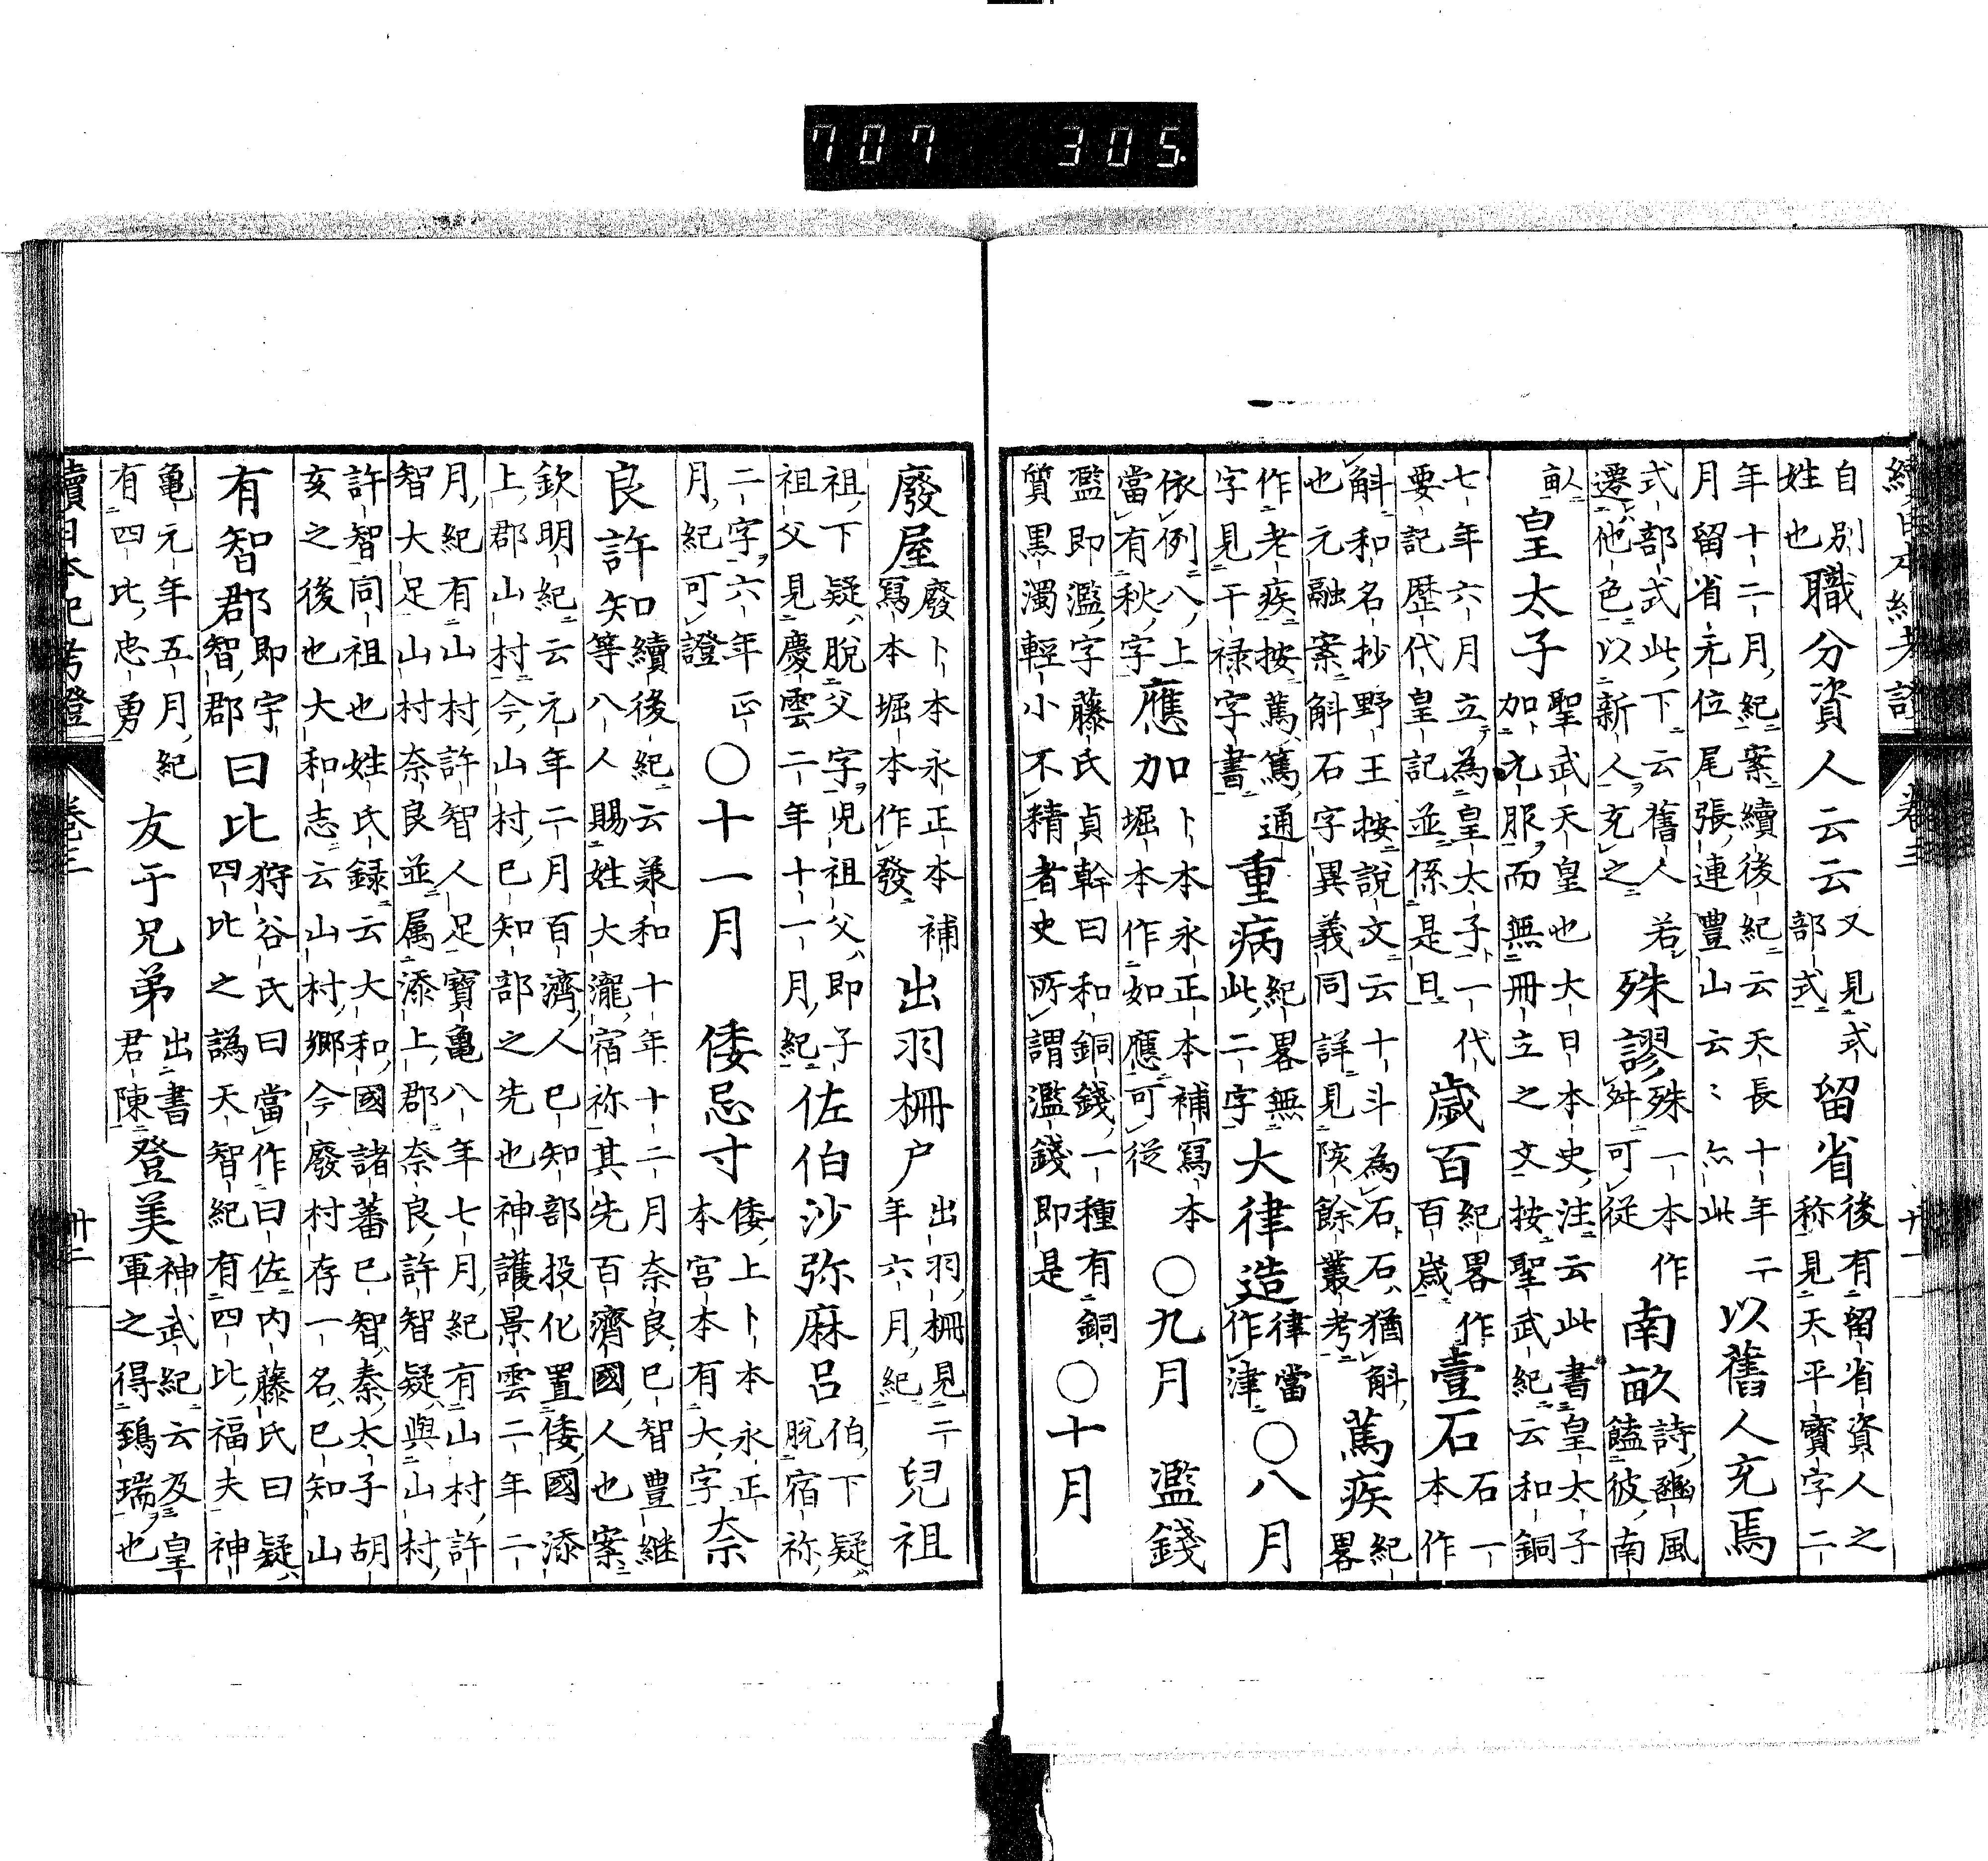 707 305.
續日本紀考證 卷三 十一
自別姓也 職分資人云云 又見式部式 留省 後有留省資人之称見天平寳字二
年十二月紀案續後紀云天長十年二月留省无位尾張連豊山云々亦此 以舊人充焉
式部式此下云舊人若遷他色以新人充之 殊謬 殊一本作舛可從 南畝 詩豳風饁彼南
畝 皇太子 聖武天皇也大日本史注云此書皇太子加元服而無冊立之文按聖武紀云和銅
七年六月立為皇太子一代要記歴代皇記並係是日 歳百 紀畧作百歳 壹石 石一本作
斛和名抄野王按説文云十斗為石石猶斛也元融案斛石字異義同詳見陔餘叢考 篤疾 紀畧
作老疾按篤篤通字見干禄字書 重病 紀畧無此二字 大律造 律當作津 〇八月
依例八上當有秋字 應加 卜本永正本補寫本堀本作如應可從 〇九月 濫錢
濫即濫字藤氏貞幹曰和銅錢一種有銅質黒濁輕小不精者史所謂濫錢即是 〇十月
廢屋 廢卜本永正本補寫本堀本作發 出羽柵户 出羽柵見二年六月紀 兒祖
祖下疑脱父字児祖父即子祖父見慶雲二年十一月紀 佐伯沙弥麻呂 伯下疑脱宿祢
二字六年正月紀可證 〇十一月 倭忌寸 倭上卜本永正本宮本有大字 奈
良許知 續後紀云兼和十年十二月奈良已智豊継等八人賜姓大瀧宿祢其先百濟國人也案
欽明紀云元年二月百濟人已知部投化置倭國添上郡山村今山村已知部之先也神護景雲二年二
月紀有山村許智人足寶亀八年七月紀有山村許智大足山村奈良並属添上郡奈良許智疑與山村
許智同祖也姓氏録云大和國諸蕃已智秦太子胡亥之後也大和志云山村郷今廢村存一名已知山
有智郡 即宇智郡 曰比 狩谷氏曰當作曰佐内藤氏曰疑四比之譌天智紀有四比福夫神
亀元年五月紀有四比忠勇 友于兄弟 出書君陳 登美 神武紀云及皇軍之得鵄瑞也
續日本紀考證 卷三 十二